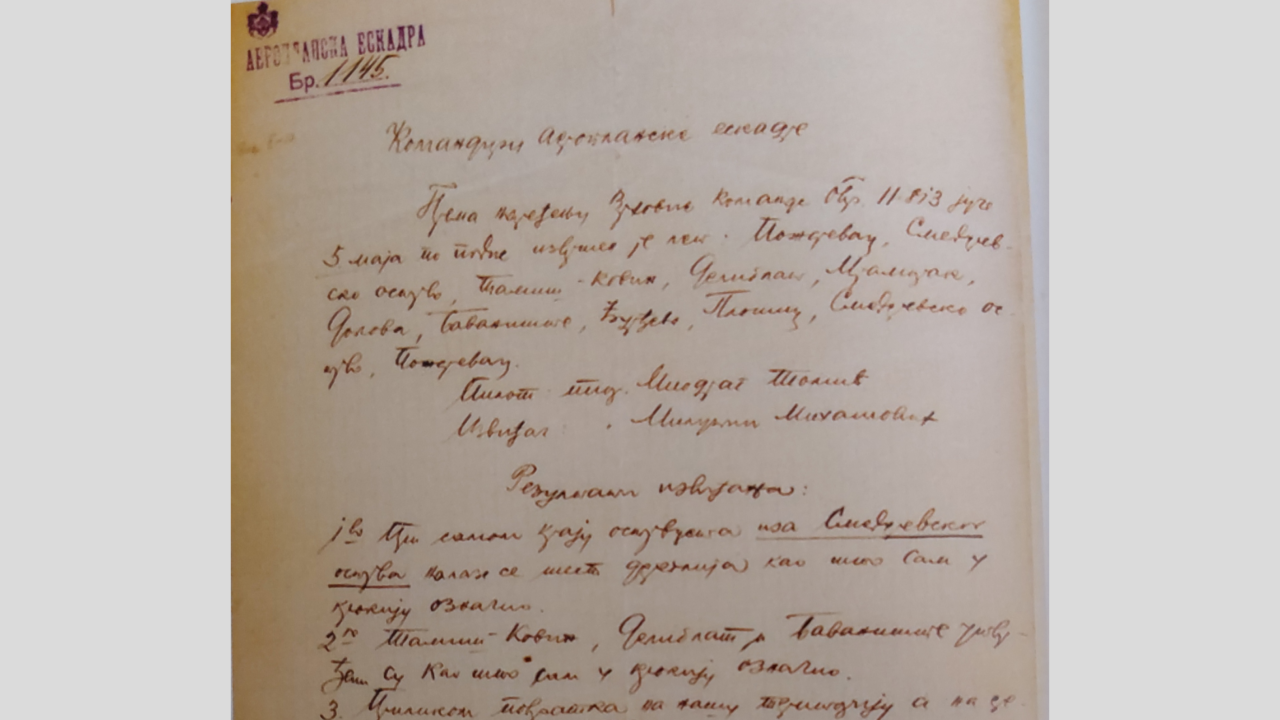 АЕРОПЛАНСКА ЕСКАДРА
Бр. 1145.
Командиру Аеропланске ескадре
Према наређењу Врховне Команде Обр. 11.813 јуче
5 маја по подне извршен је лет: Пожаревац, Смедерев-
ско острво, Тамиш-Ковин, Делиблат, Мраморак,
Долова, Баваниште, Плочица, Смедеревско ос-
трво, Пожаревац.
Пилот пор. Миодраг Томић
Извиђач Милутин Михаиловић
Резултати извиђања:
1во При самом крају острвцета иза Смедеревског
острва налазе се шест као што сам у
крокију означио.
2го Тамиш-Ковин, Делиблат и Баваниште утвр-
ђени су као што сам у крокију означио.
3. Приликом повратка на нашу територију а на де-